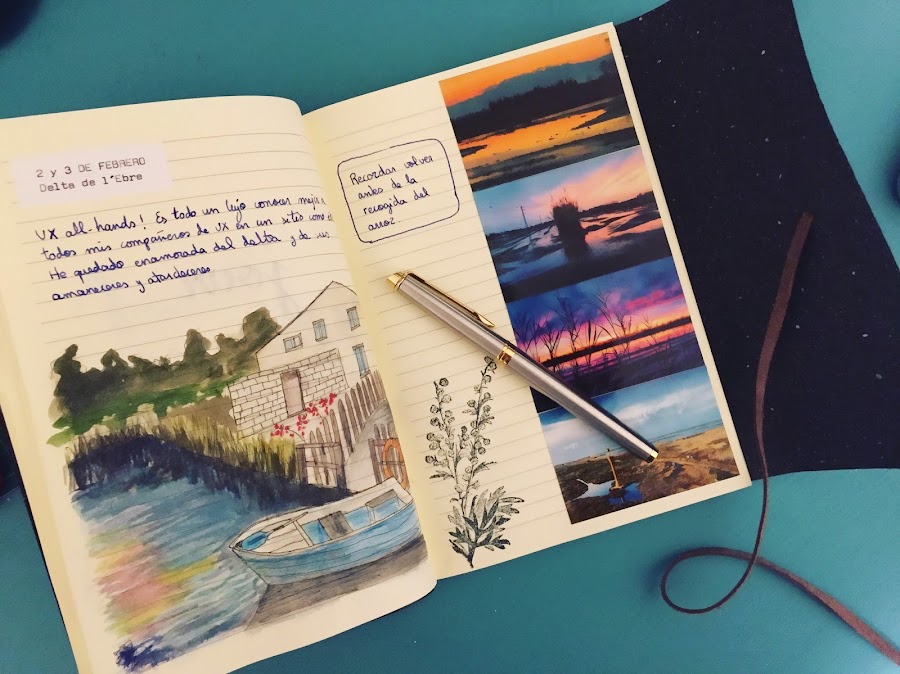 2 y 3 DE FEBRERO
Delta de l'Ebre
VX all-hands! Es todo un lujo conocer mejor a
todos mis compañeros de VX en un sitio como
He quedado enamorada del delta y de sus
amaneceres y atardeceres
Recordar volver
antes de la
recogida del
arroz